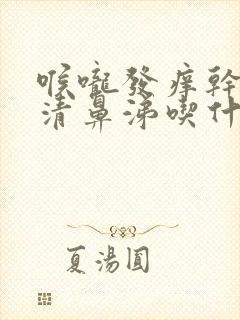 喉嚨發癢幹
清鼻涕喫什
夏湯圓